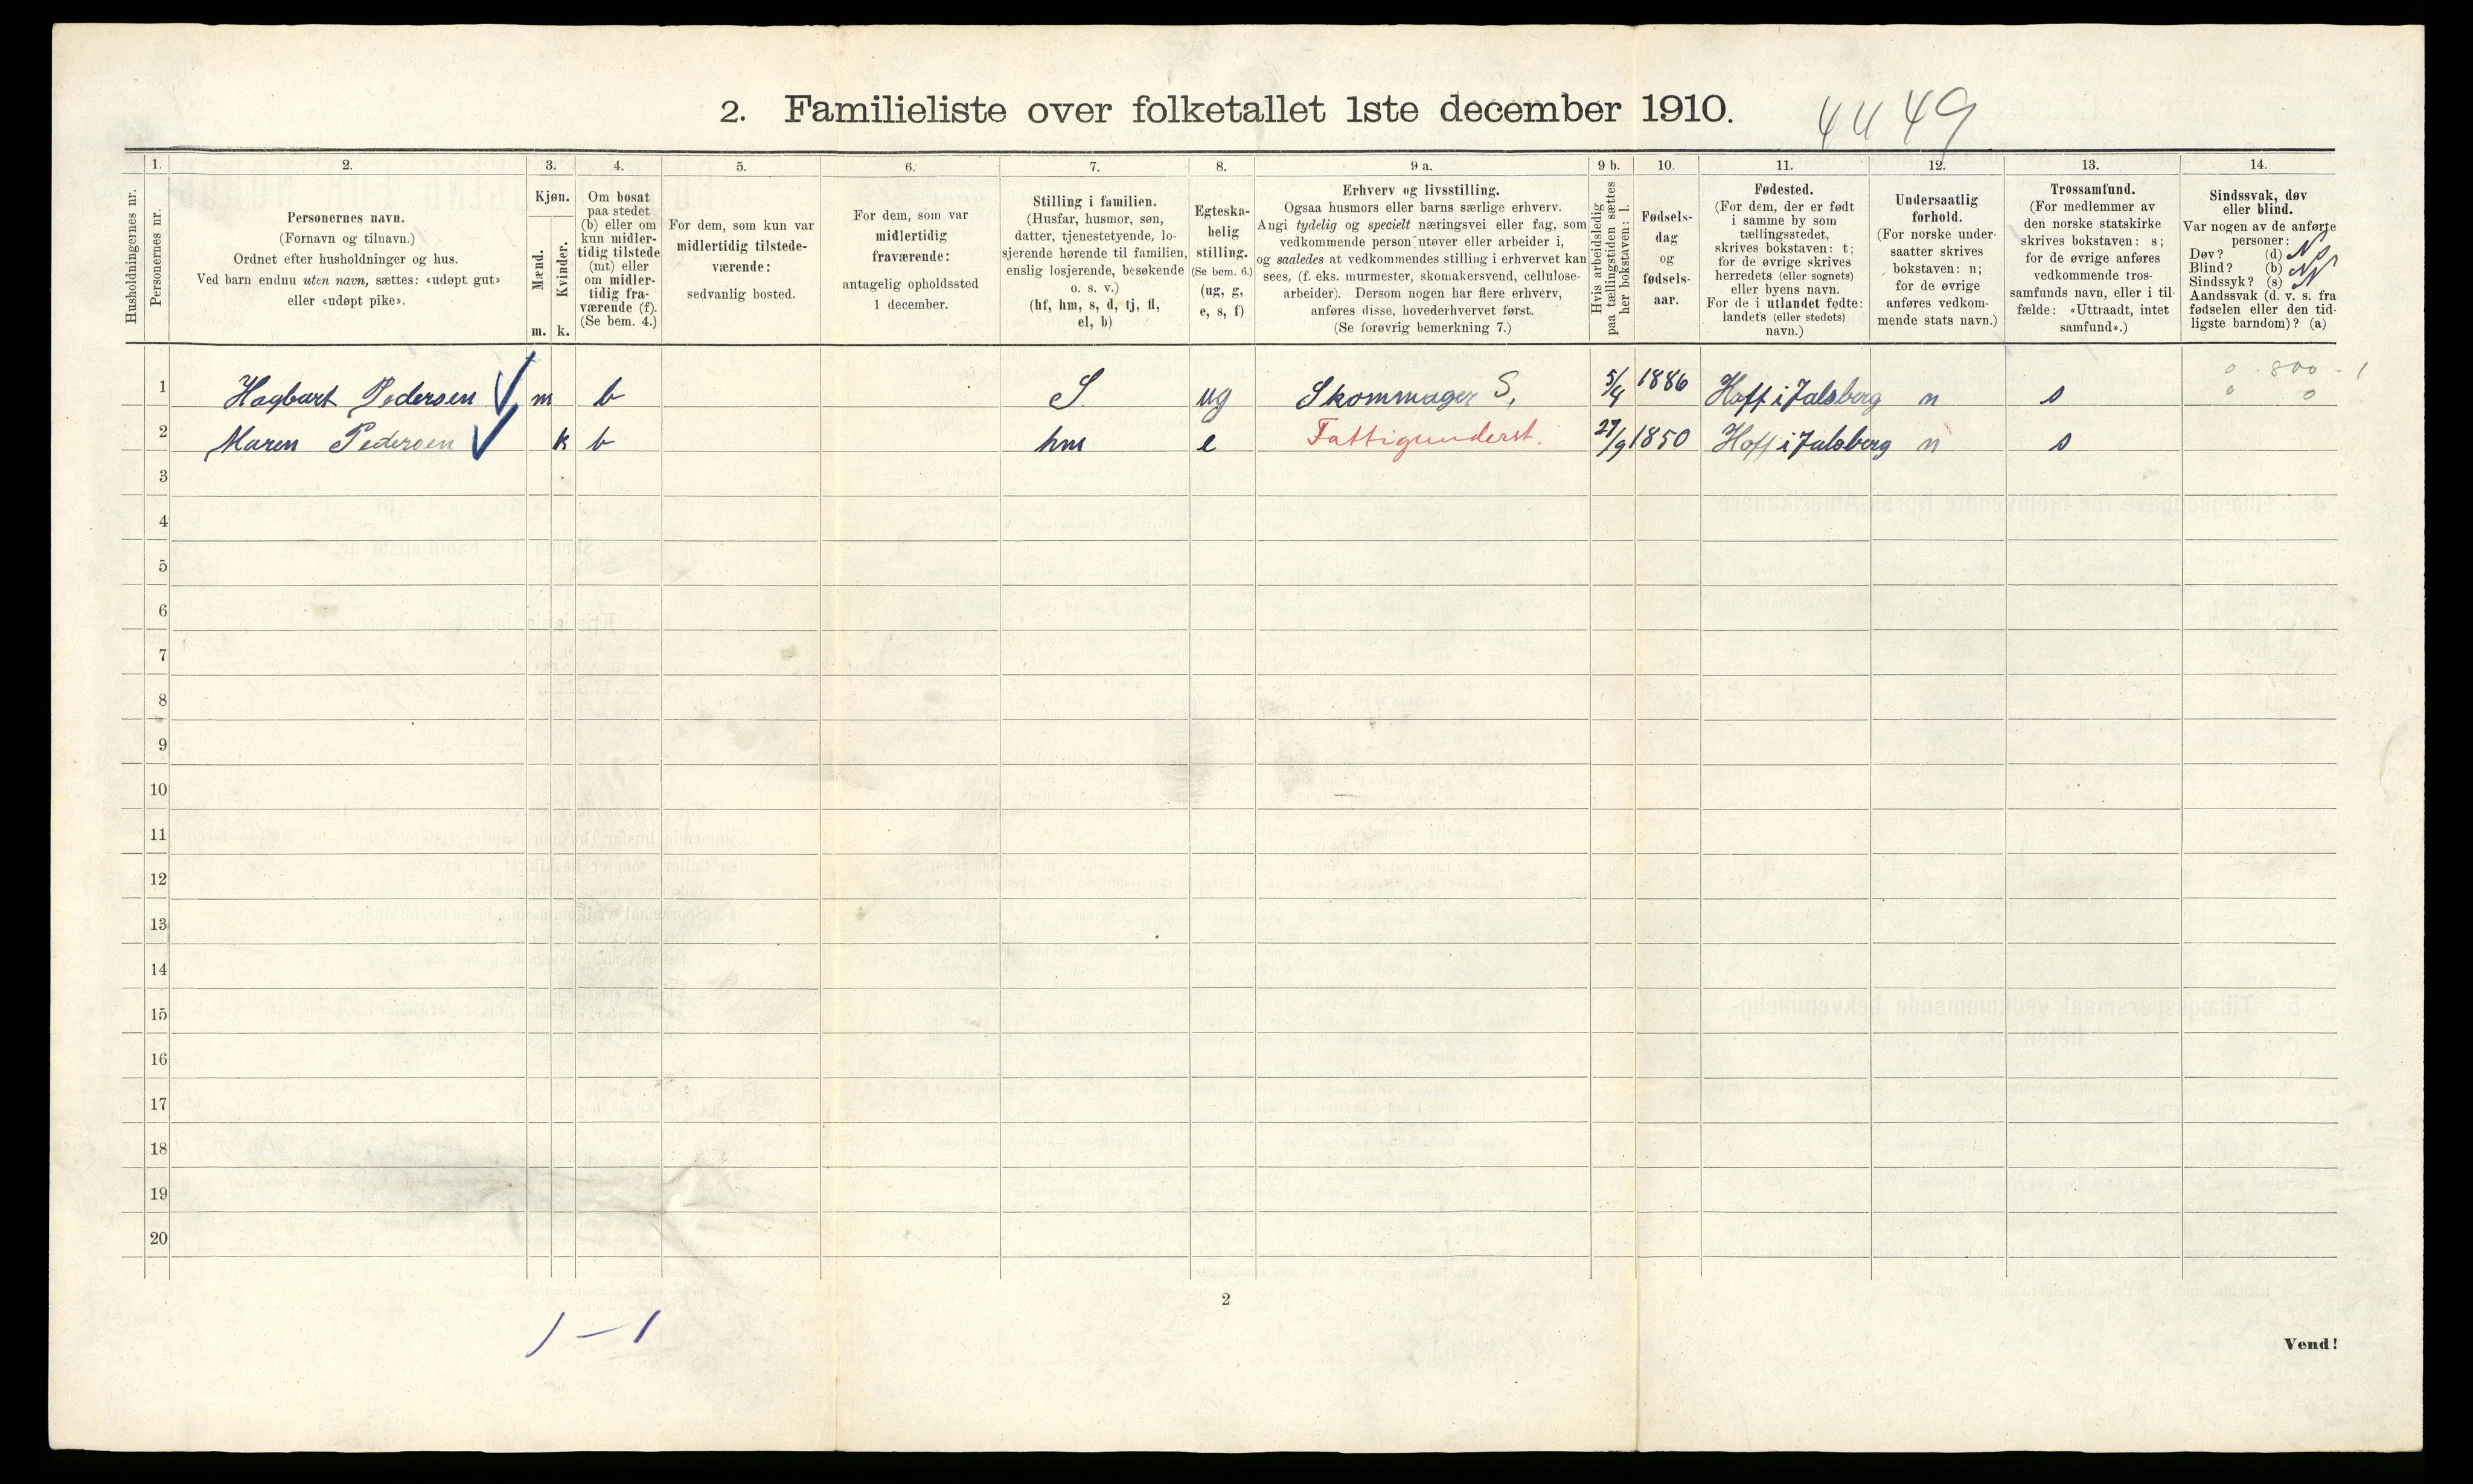 2. Familieliste over folketallet 1ste december 1910.
4449
Husholdningernes nr.
1.
Personernes nr.
2.
Personernes navn.
(Fornavn og tilnavn.)
Ordnet efter husholdninger og hus.
Ved barn endnu uten navn, sættes: «udøpt gut»
eller «udøpt pike».
3.
Kjøn.
Mænd.
Kvinder.
m. k.
4.
Om bosat
paa stedet
(b) eller om
kun midler-
tidig tilstede
(mt) eller
om midler-
tidig fra-
værende (f).
(Se bem. 4.)
5.
For dem, som kun var
midlertidig tilstede-
værende:
sedvanlig bosted.
6.
For dem, som var
midlertidig
fraværende:
antagelig opholdssted
1 december.
7.
Stilling i familien.
(Husfar, husmor, søn,
datter, tjenestetyende, lo-
sjerende hørende til familien,
enslig losjerende, besøkende
o. s. v.)
(hf, hm, s, d, tj, fl,
el, b)
8.
Egteska-
belig
stilling.
(Se bem. 6.)
(ug, g,
e, s, f)
9 a.
Erhverv og livsstilling.
Ogsaa husmors eller barns særlige erhverv.
Angi tydelig og specielt næringsvei eller fag, som
vedkommende person utøver eller arbeider i,
og saaledes at vedkommendes stilling i erhvervet kan
sees, (f. eks. murmester, skomakersvend, cellulose-
arbeider). Dersom nogen har flere erhverv,
anføres disse, hovederhvervet først.
(Se forøvrig bemerkning 7.)
9 b.
Hvis arbeidsledig
paa tællingstiden sættes
her bokstaven: l.
10.
Fødsels-
dag
og
fødsels-
aar.
11.
Fødested.
(For dem, der er født
i samme by som
tællingsstedet,
skrives bokstaven: t;
for de øvrige skrives
herredets (eller sognets)
eller byens navn.
For de i utlandet fødte:
landets (eller stedets)
navn.)
12.
Undersaatlig
forhold.
(For norske under-
saatter skrives
bokstaven: n;
for de øvrige
anføres vedkom-
mende stats navn.)
13.
Trossamfund.
(For medlemmer av
den norske statskirke
skrives bokstaven: s;
for de øvrige anføres
vedkommende tros-
samfunds navn, eller i til-
fælde: «Uttraadt, intet
samfund».)
14.
Sindssvak, døv
eller blind.
Var nogen av de anførte
personer:
Døv? (d)
Blind? (b)
Sindssyk? (s)
Aandssvak (d. v. s. fra
fødselen eller den tid-
ligste barndom)? (a)
0 . 800 - 1
0 0
1 Hagbart Pedersen m b S ug Skommager S, 5/4 1886 Hoff i Jalsberg n s
2 Maren Pedersen k b hm e Fattigunderst. 27/9 1850 Hoff i Jalsberg n s
3
4
5
6
7
8
9
10
11
12
13
14
15
16
17
18
19
20
2
1 – 1
Vend!